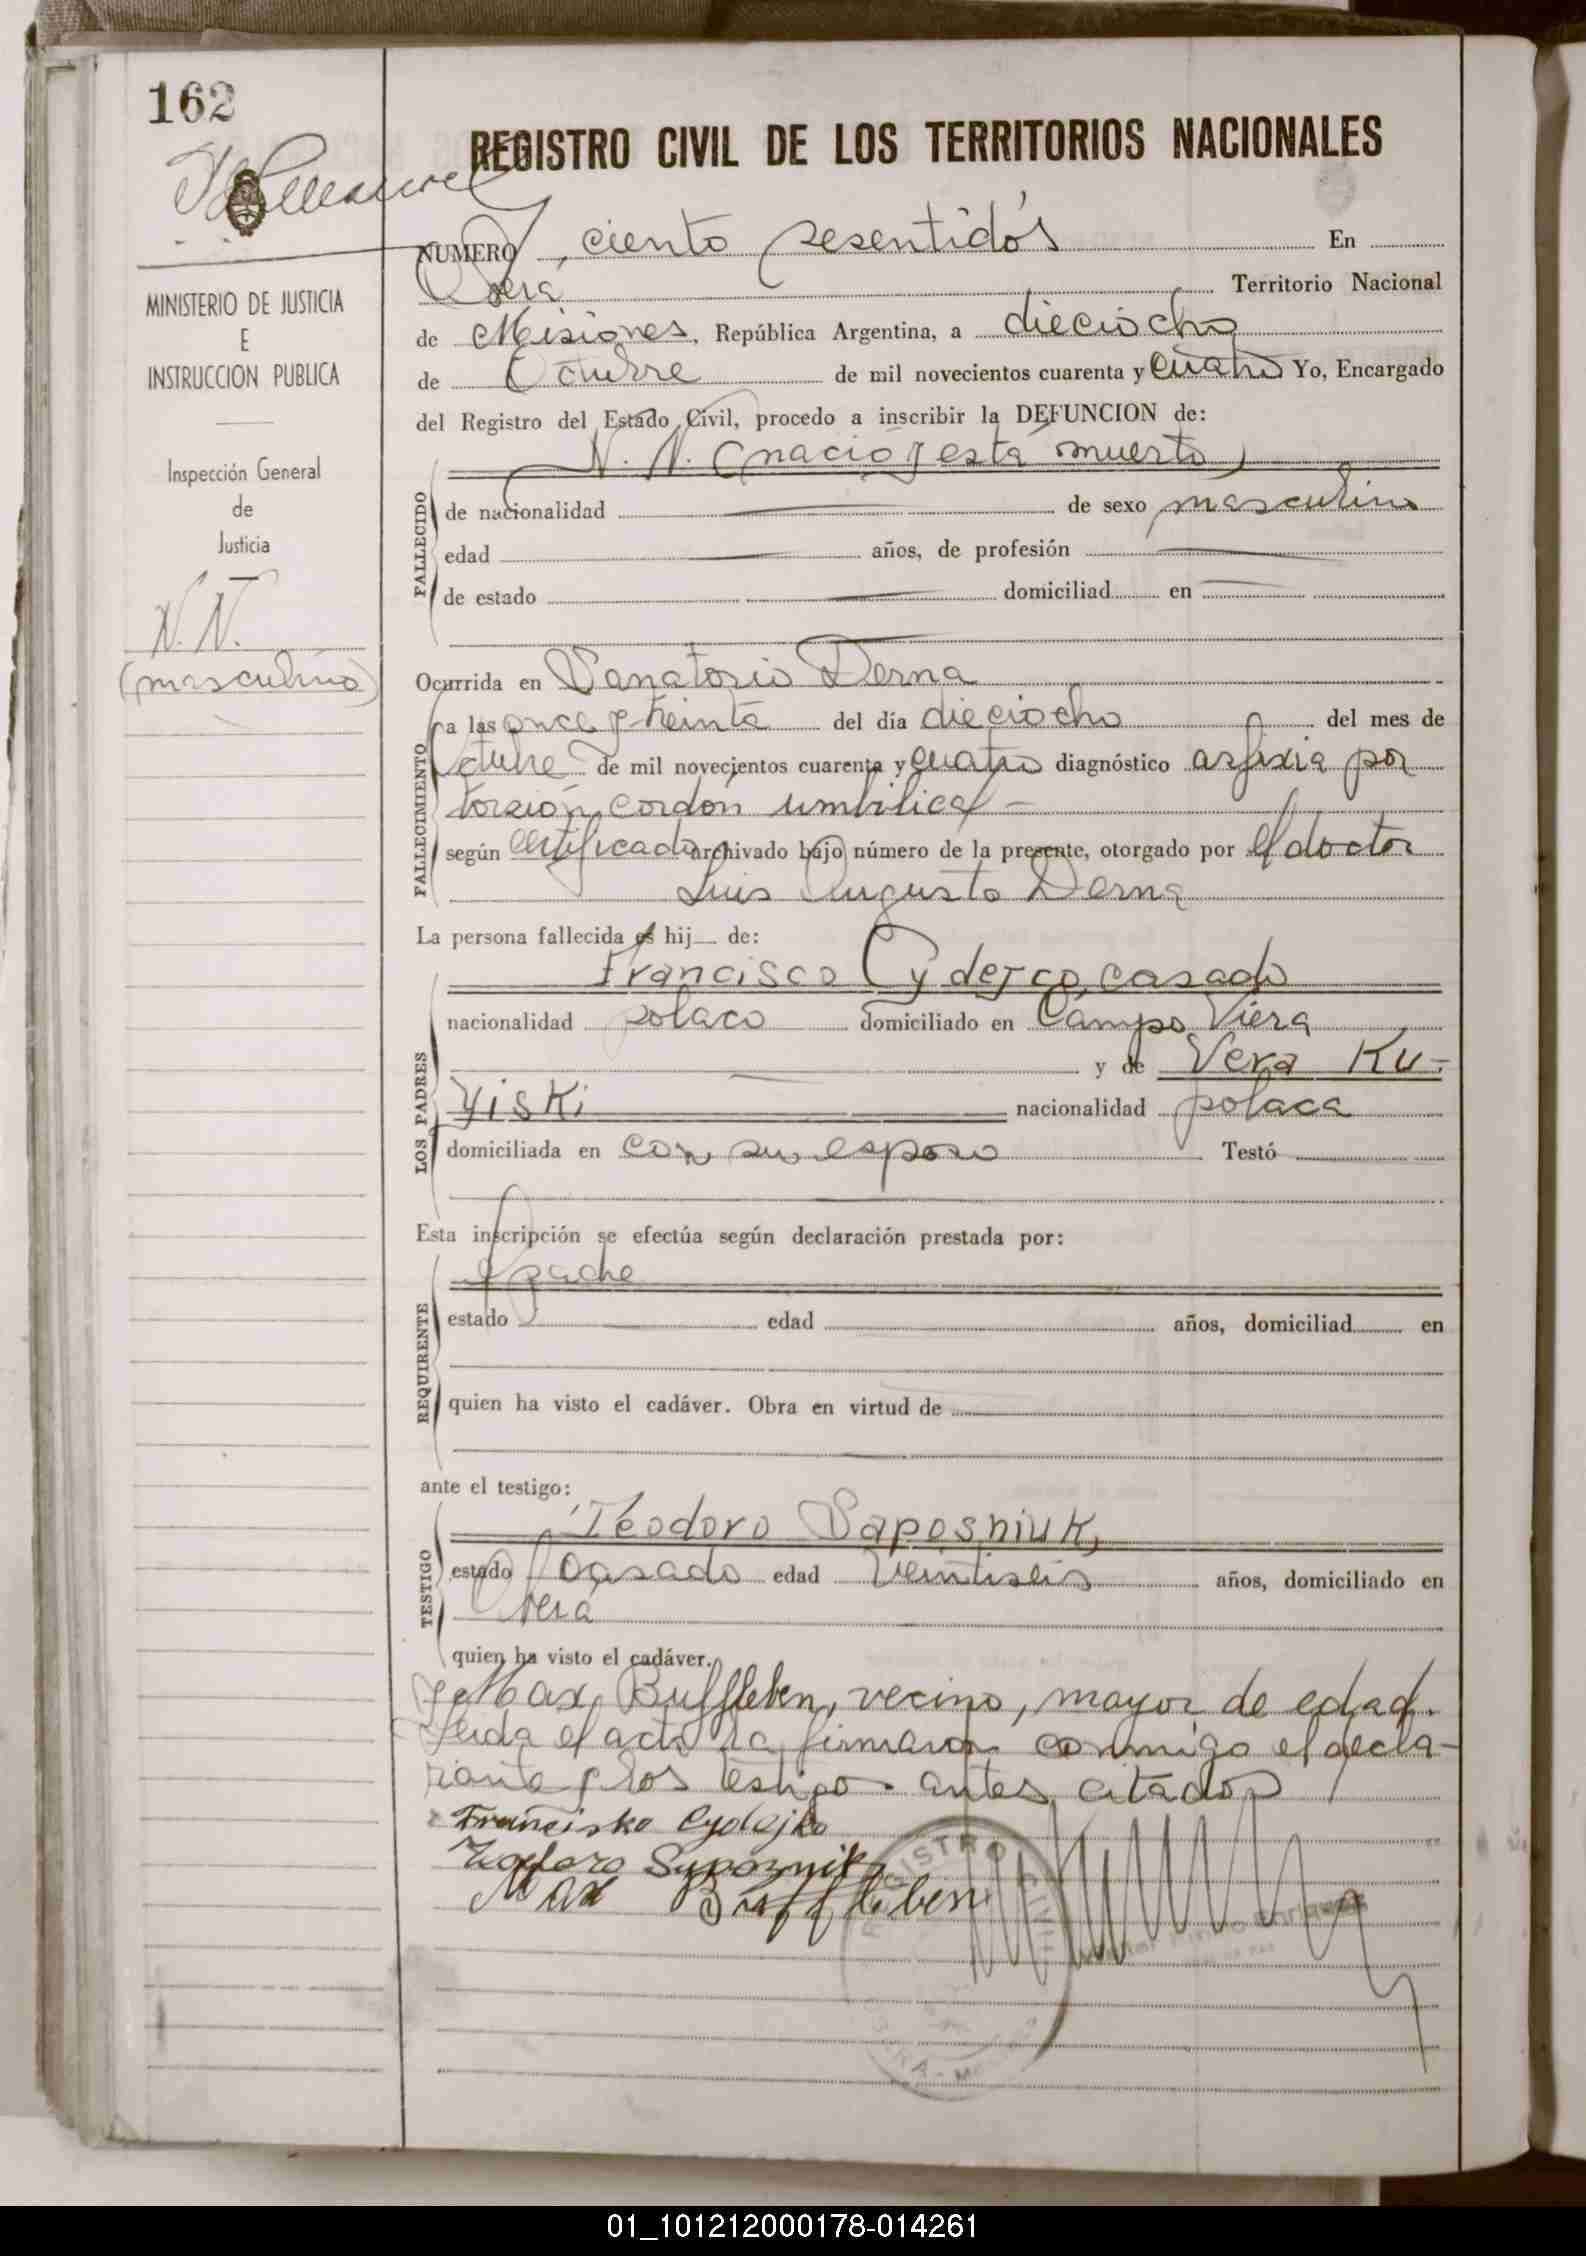 162
REGISTRO CIVIL DE LOS TERRITORIOS NACIONALES
MINISTERIO DE JUSTICIA
E
INSTRUCCION PUBLICA
Inspección General
de
Justicia
N. N.
(masculino)
NUMERO ciento sesentidós En
Oberá Territorio Nacional
de Misiones, República Argentina, a dieciocho
de Octubre de mil novecientos cuarenta y cuatro Yo, Encargado
del Registro del Estado Civil, procedo a inscribir la DEFUNCION de:
N. N. (nació y está muerto)
FALLECIDO
de nacionalidad de sexo masculino
edad años, de profesión
de estado domiciliad en
Ocurrida en Sanatorio Derna
FALLECIMIENTO
a las once y treinta del día dieciocho del mes de
Octubre de mil novecientos cuarenta y cuatro diagnóstico asfixia por
torsión cordón umbilical -
según certificado archivado bajo número de la presente, otorgado por el doctor
Luis Augusto Derna
La persona fallecida es hij de:
LOS PADRES
Francisco Cydejco, casado
nacionalidad polaco domiciliado en Campo Viera
y de Vera Ku-
yiski nacionalidad polaca
domiciliada en con su esposo Testó
Esta inscripción se efectúa según declaración prestada por:
REQUIRENTE
el padre
estado edad años, domiciliad en
quien ha visto el cadáver. Obra en virtud de
ante el testigo:
TESTIGO
Teodoro Saposniuk,
estado casado edad veintiseis años, domiciliado en
Oberá
quien ha visto el cadáver.
y Max Buffleben, vecino, mayor de edad.
Leida el acta la firmaron conmigo el decla-
rante y los testigos antes citados
Francisko Cydejko
Teodoro Sapoznik
Max Buffleben
REGISTRO CIVIL
01_101212000178-014261